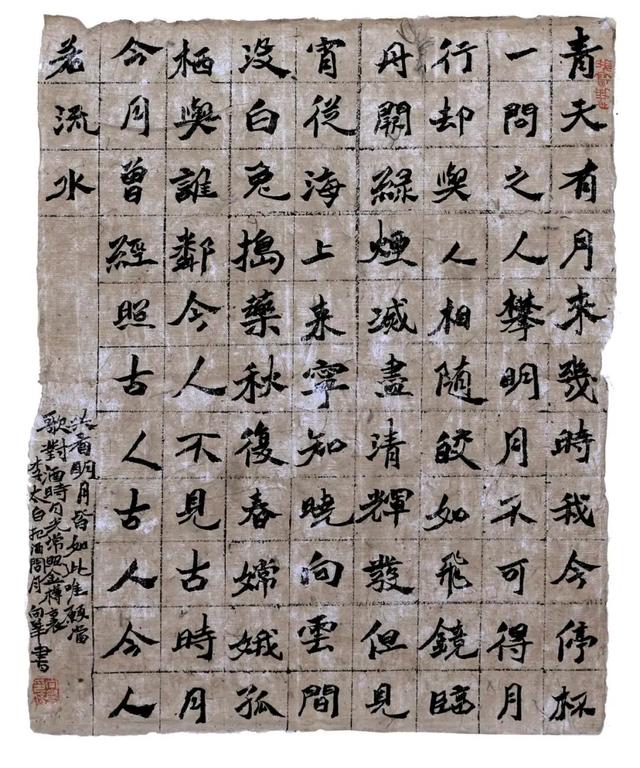 青天有月来幾時我今停杯
一問之人攀明月不可得月
行却與人相随皎如飛鏡臨
丹闕緑煙滅盡清輝發但見
宵從海上来寧知曉向雲間
没白兔搗藥秋復春嫦娥孤
栖與誰鄰今人不見古時月
今月曾經照古人古人今人
若流水
共看明月皆如此唯願當
歌對酒時月光常照金樽裏
李太白把酒問月向華書